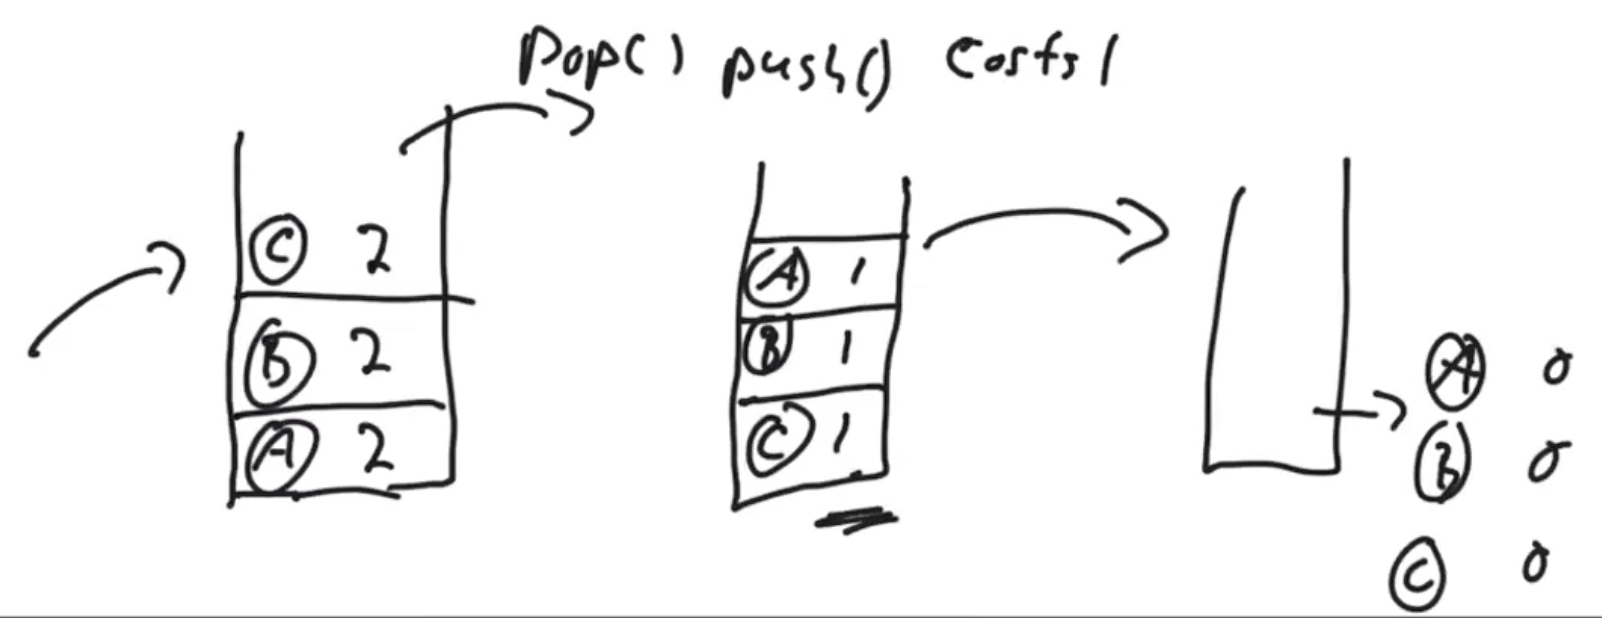 pop() push() costs 1
C 2
B 2
A 2
A 1
B 1
C 1
A 0
B 0
C 0